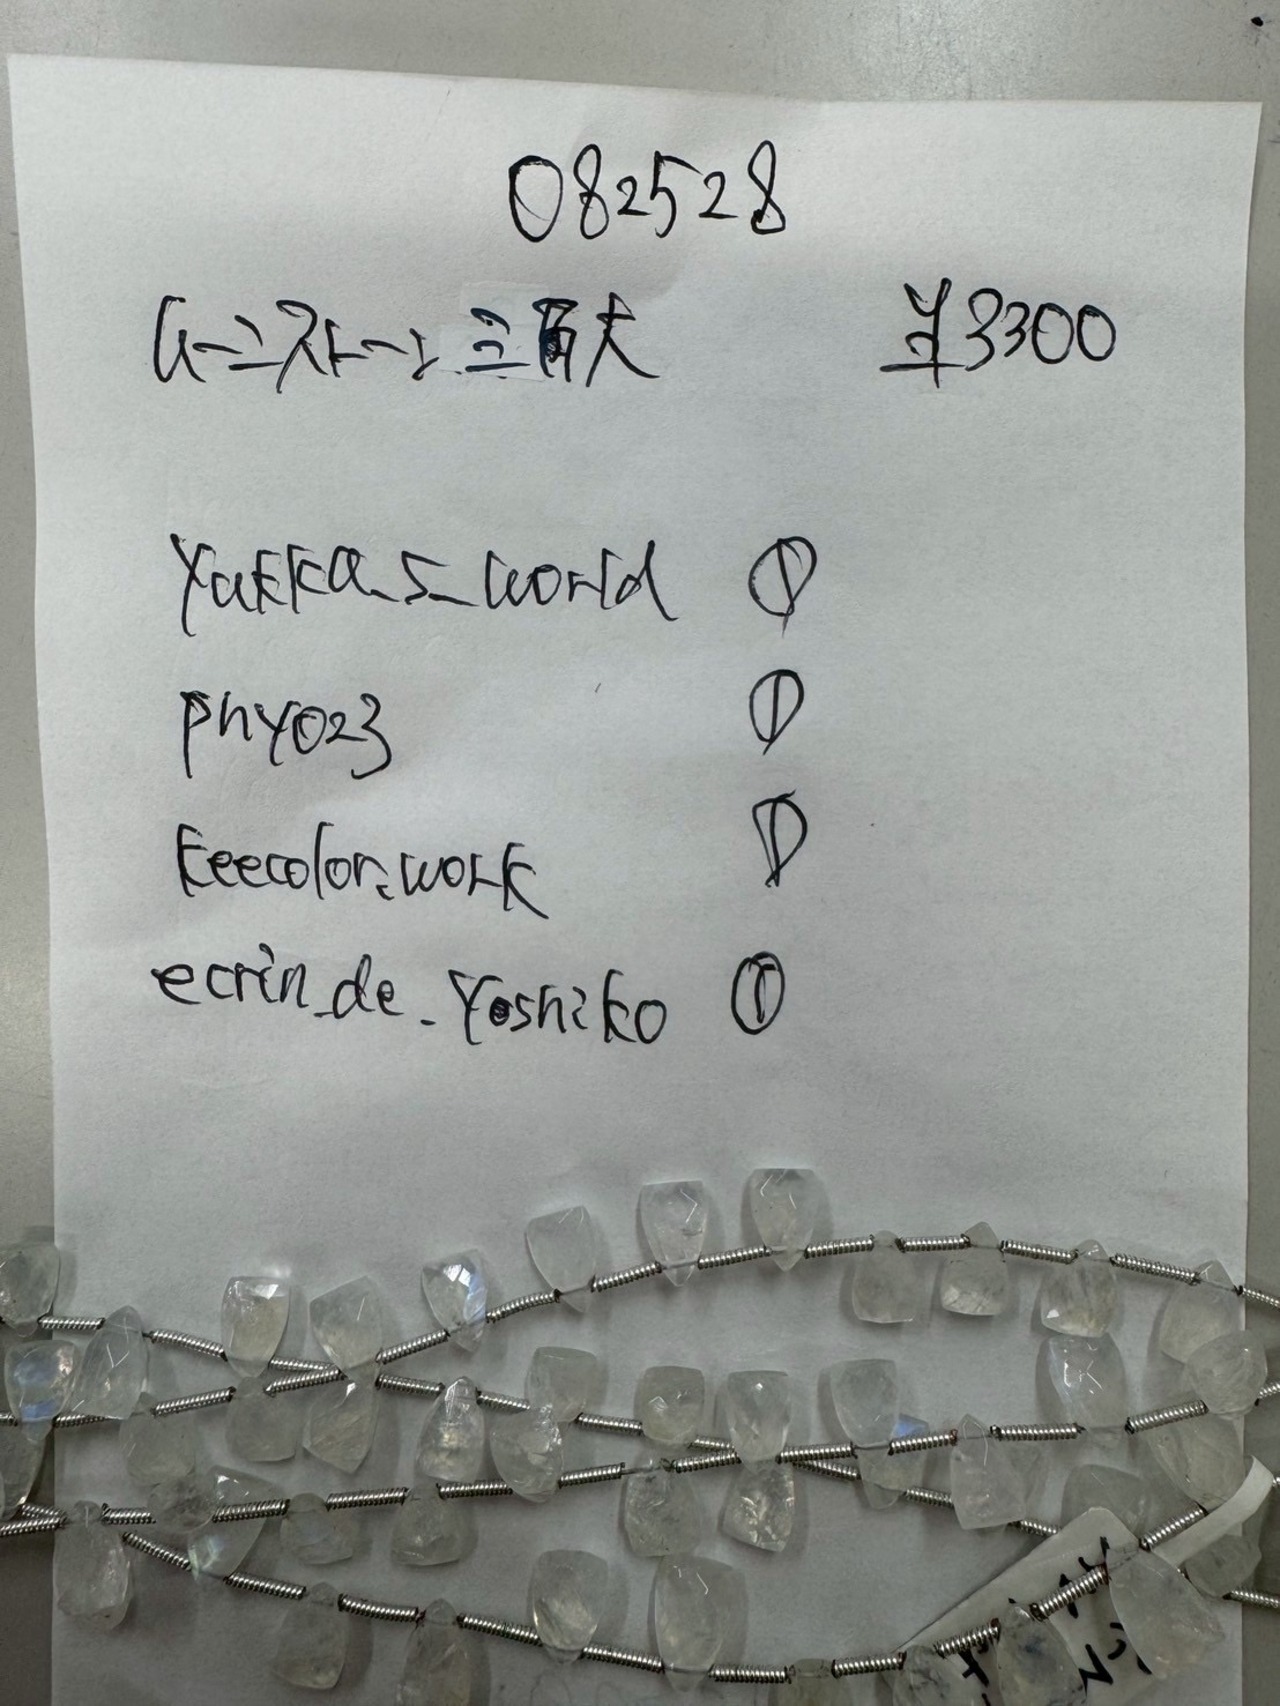 082528
ムーンストーン三角大 ¥3300
yukka_s_world ①
phyo23 ①
keecolor.work ①
ecrin_de_yoshiko ①